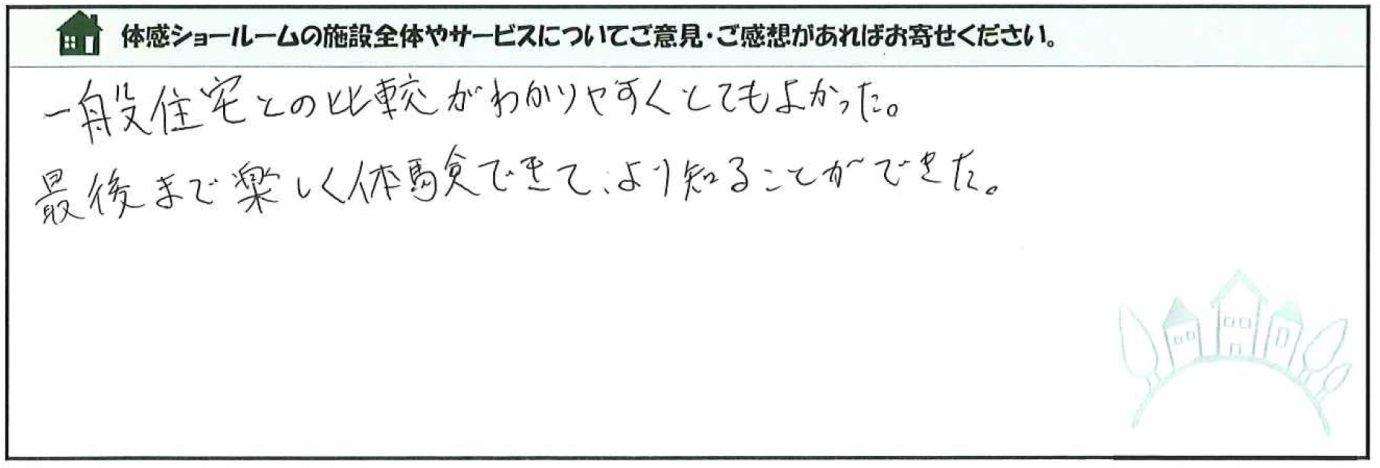 体感ショールームの施設全体やサービスについてご意見・ご感想があればお寄せください。
一般住宅との比較がわかりやすくとてもよかった。
最後まで楽しく体験できて、より知ることができた。